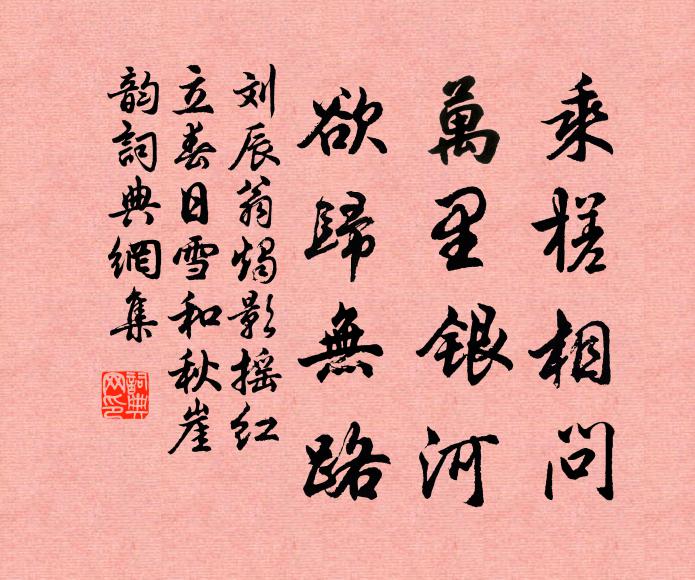 乘槎相問
萬里銀河
欲歸無路
刘辰翁燭影摇红
立春日雪和秋崖
韵詞典網集
詞典
网印